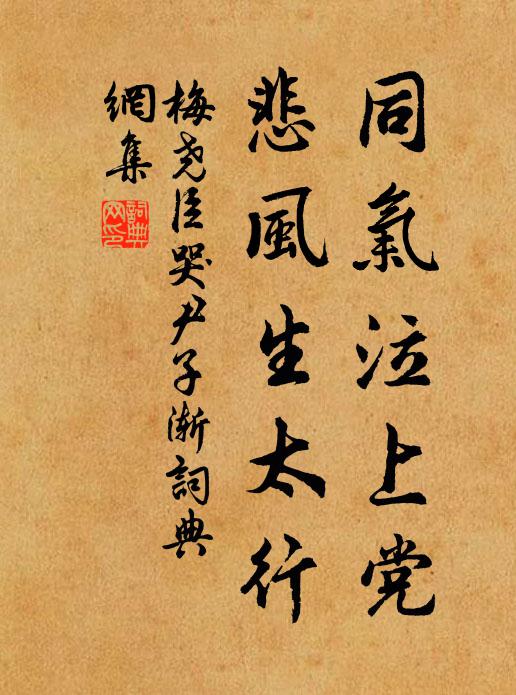 同氣泣上党
悲風生太行
梅尧臣哭尹子渐詞典
網集
詞典
网印